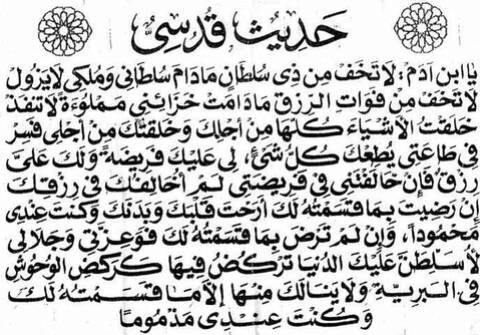 حَدِيث قُدسِىّ
يَا ابن آدَم: لاَ تَخَف مِن ذِى سُلطَانٍ مَادَامَ سُلطَانِى وَمُلكِى لاَ يَزُول
لاَ تَخَف مِن فَوَاتِ الرِّزقِ مَادَامَت خَزَائِنِى مَملُوءَةً لاَ تَنفَذ
خَلَقتُ الأَشيَاءَ كُلَّهَا مِن أَجلِكَ وَخَلَقتُكَ مِن أَجلِى فَسِر
فِى طَاعَتِى يُطِعكَ كُلُّ شَىءٍ، لِى عَلَيكَ فَرِيضَةٌ وَلَكَ عَلَىَّ
رِزقٌ فَإِن خَالَفتَنِى فِى فَرِيضَتِى لَم أُخَالِفكَ فِى رِزقِكَ
إِن رَضِيتَ بِمَا قَسَمتُهُ لَكَ أَرَحتُ قَلبَكَ وَبَدَنَكَ وَكُنتَ عِندِى
مَحمُوداً، وَإِن لَم تَرضَ بِمَا قَسَمتُهُ لَكَ فَوَعِزَّتِى وَجَلاَلِى
لأُسَلِّطَنَّ عَلَيكَ الدُّنيَا تَركُضُ فِيهَا كَرَكضِ الوُحُوشِ
فِى البَرِيَّةِ وَلاَ يَنَالُكَ مِنهَا إِلاَّ مَا قَسَمتُهُ لَكَ
وَكُنتَ عِندِى مَذمُومًا